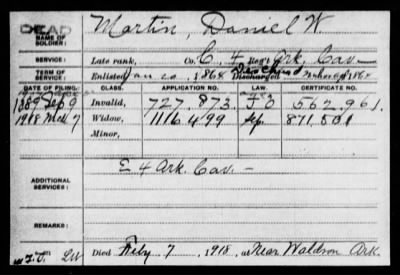 DEAD
NAME OF SOLDIER: Martin, Daniel W.
SERVICE: Late rank, Co. C, 4 Reg't Ark. Cav.
TERM OF SERVICE: Enlisted Jan. 20, 1864 Discharged 1864
DATE OF FILING. CLASS. APPLICATION NO. LAW. CERTIFICATE NO.
1889 Sep 9 Invalid, 727.873. 562.961.
1918 Mch 7 Widow, 1116499 871.501
Minor,
ADDITIONAL SERVICES: E 4 Ark. Cav. -
REMARKS:
Died Feby 7, 1918, at Near Waldron Ark.